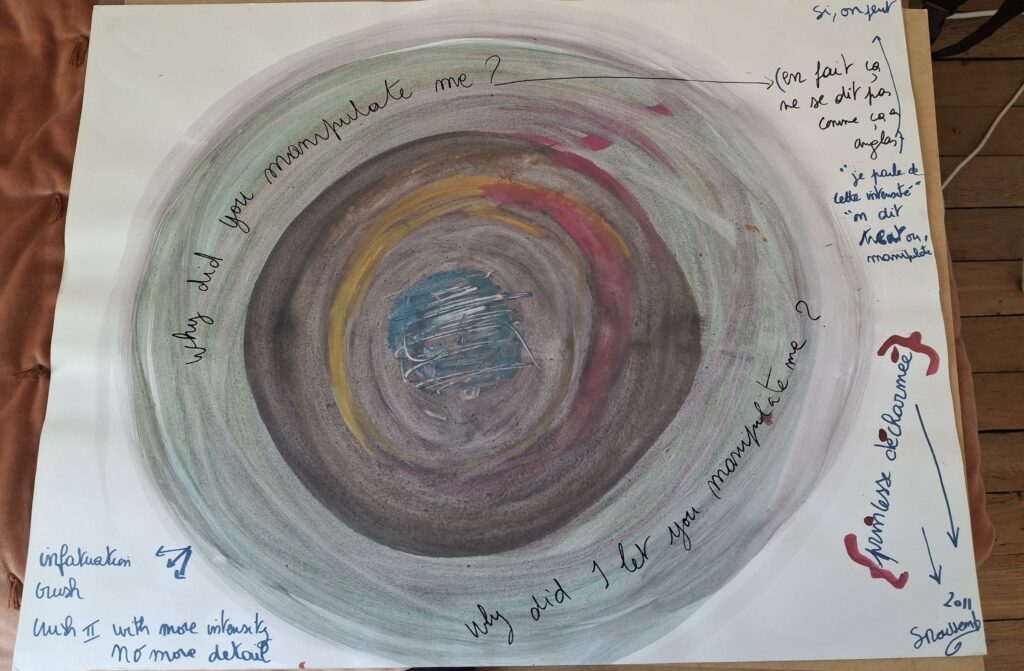 si, on peut
Why did you manipulate me ?
(en fait ça
ne se dit pas
comme ça
anglais)
"je parle de
cette intensité"
"on dit
manipulate
Why did I let you manipulate me ?
{princesse décharmée}
infatuation
crush
crush II with more intensity
NO more detail
2011